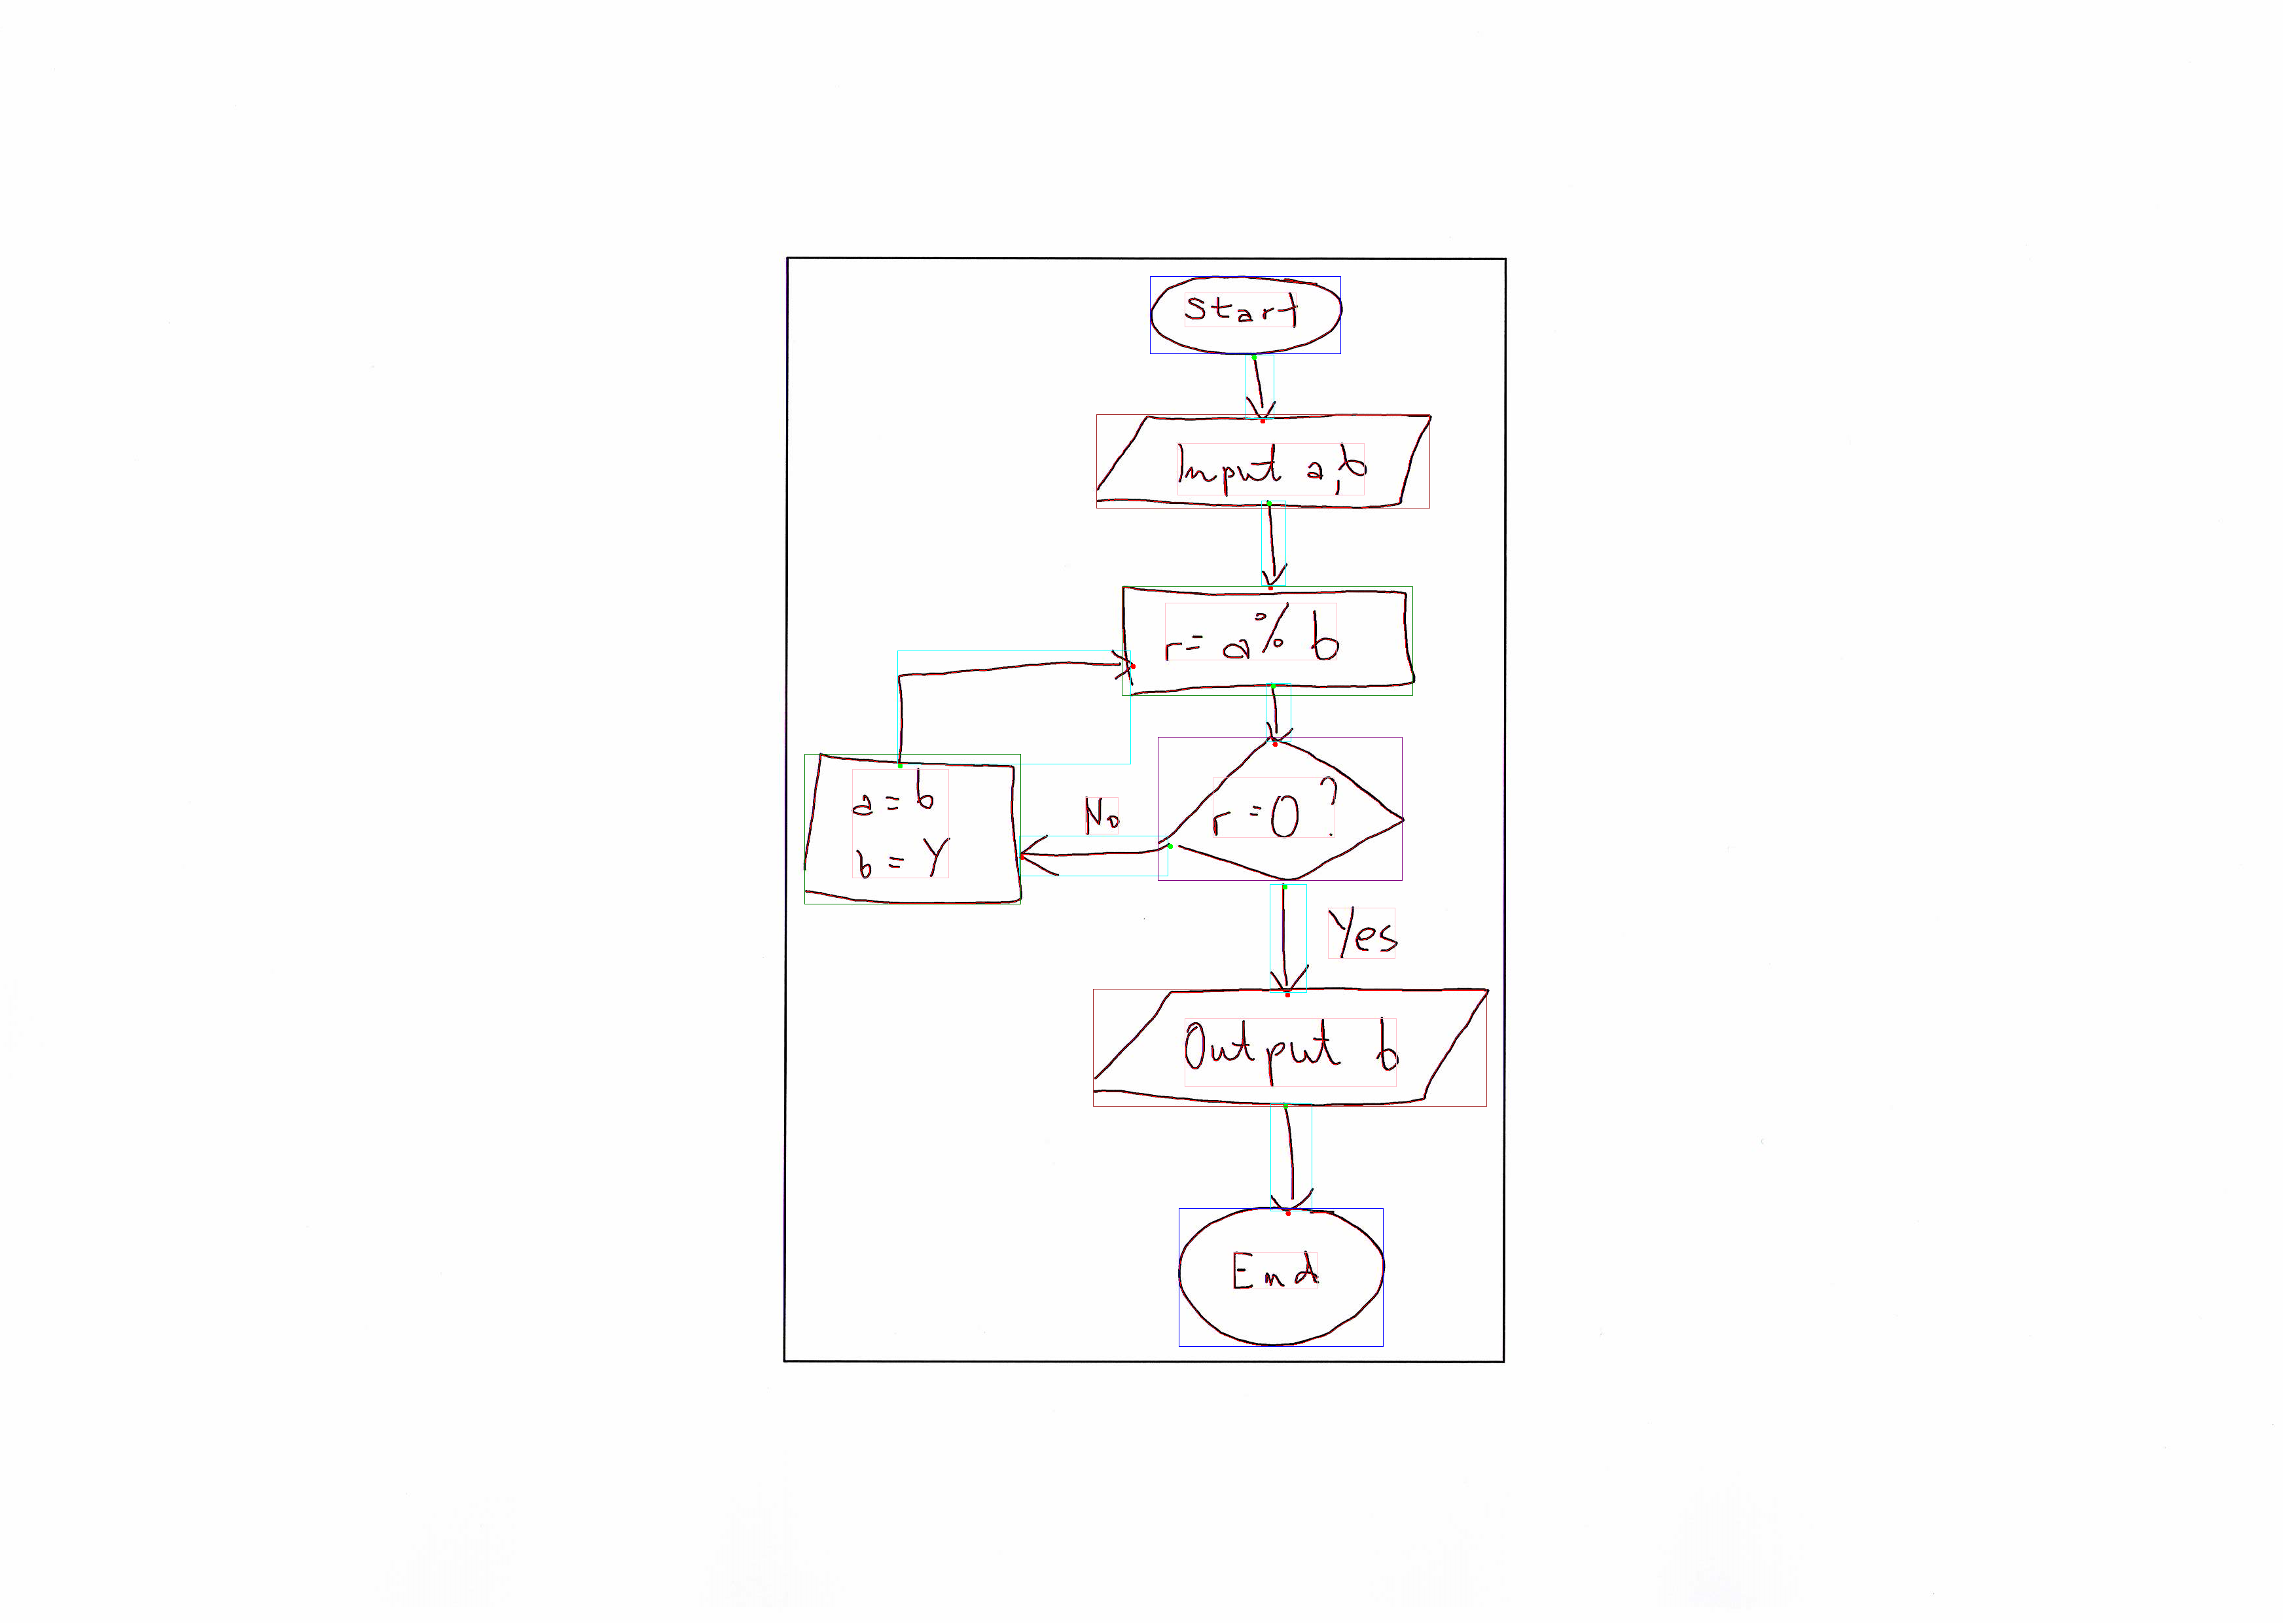 Start
Input a,b
r= a % b
r = 0 ?
No
a = b
b = Y
Yes
Output b
End